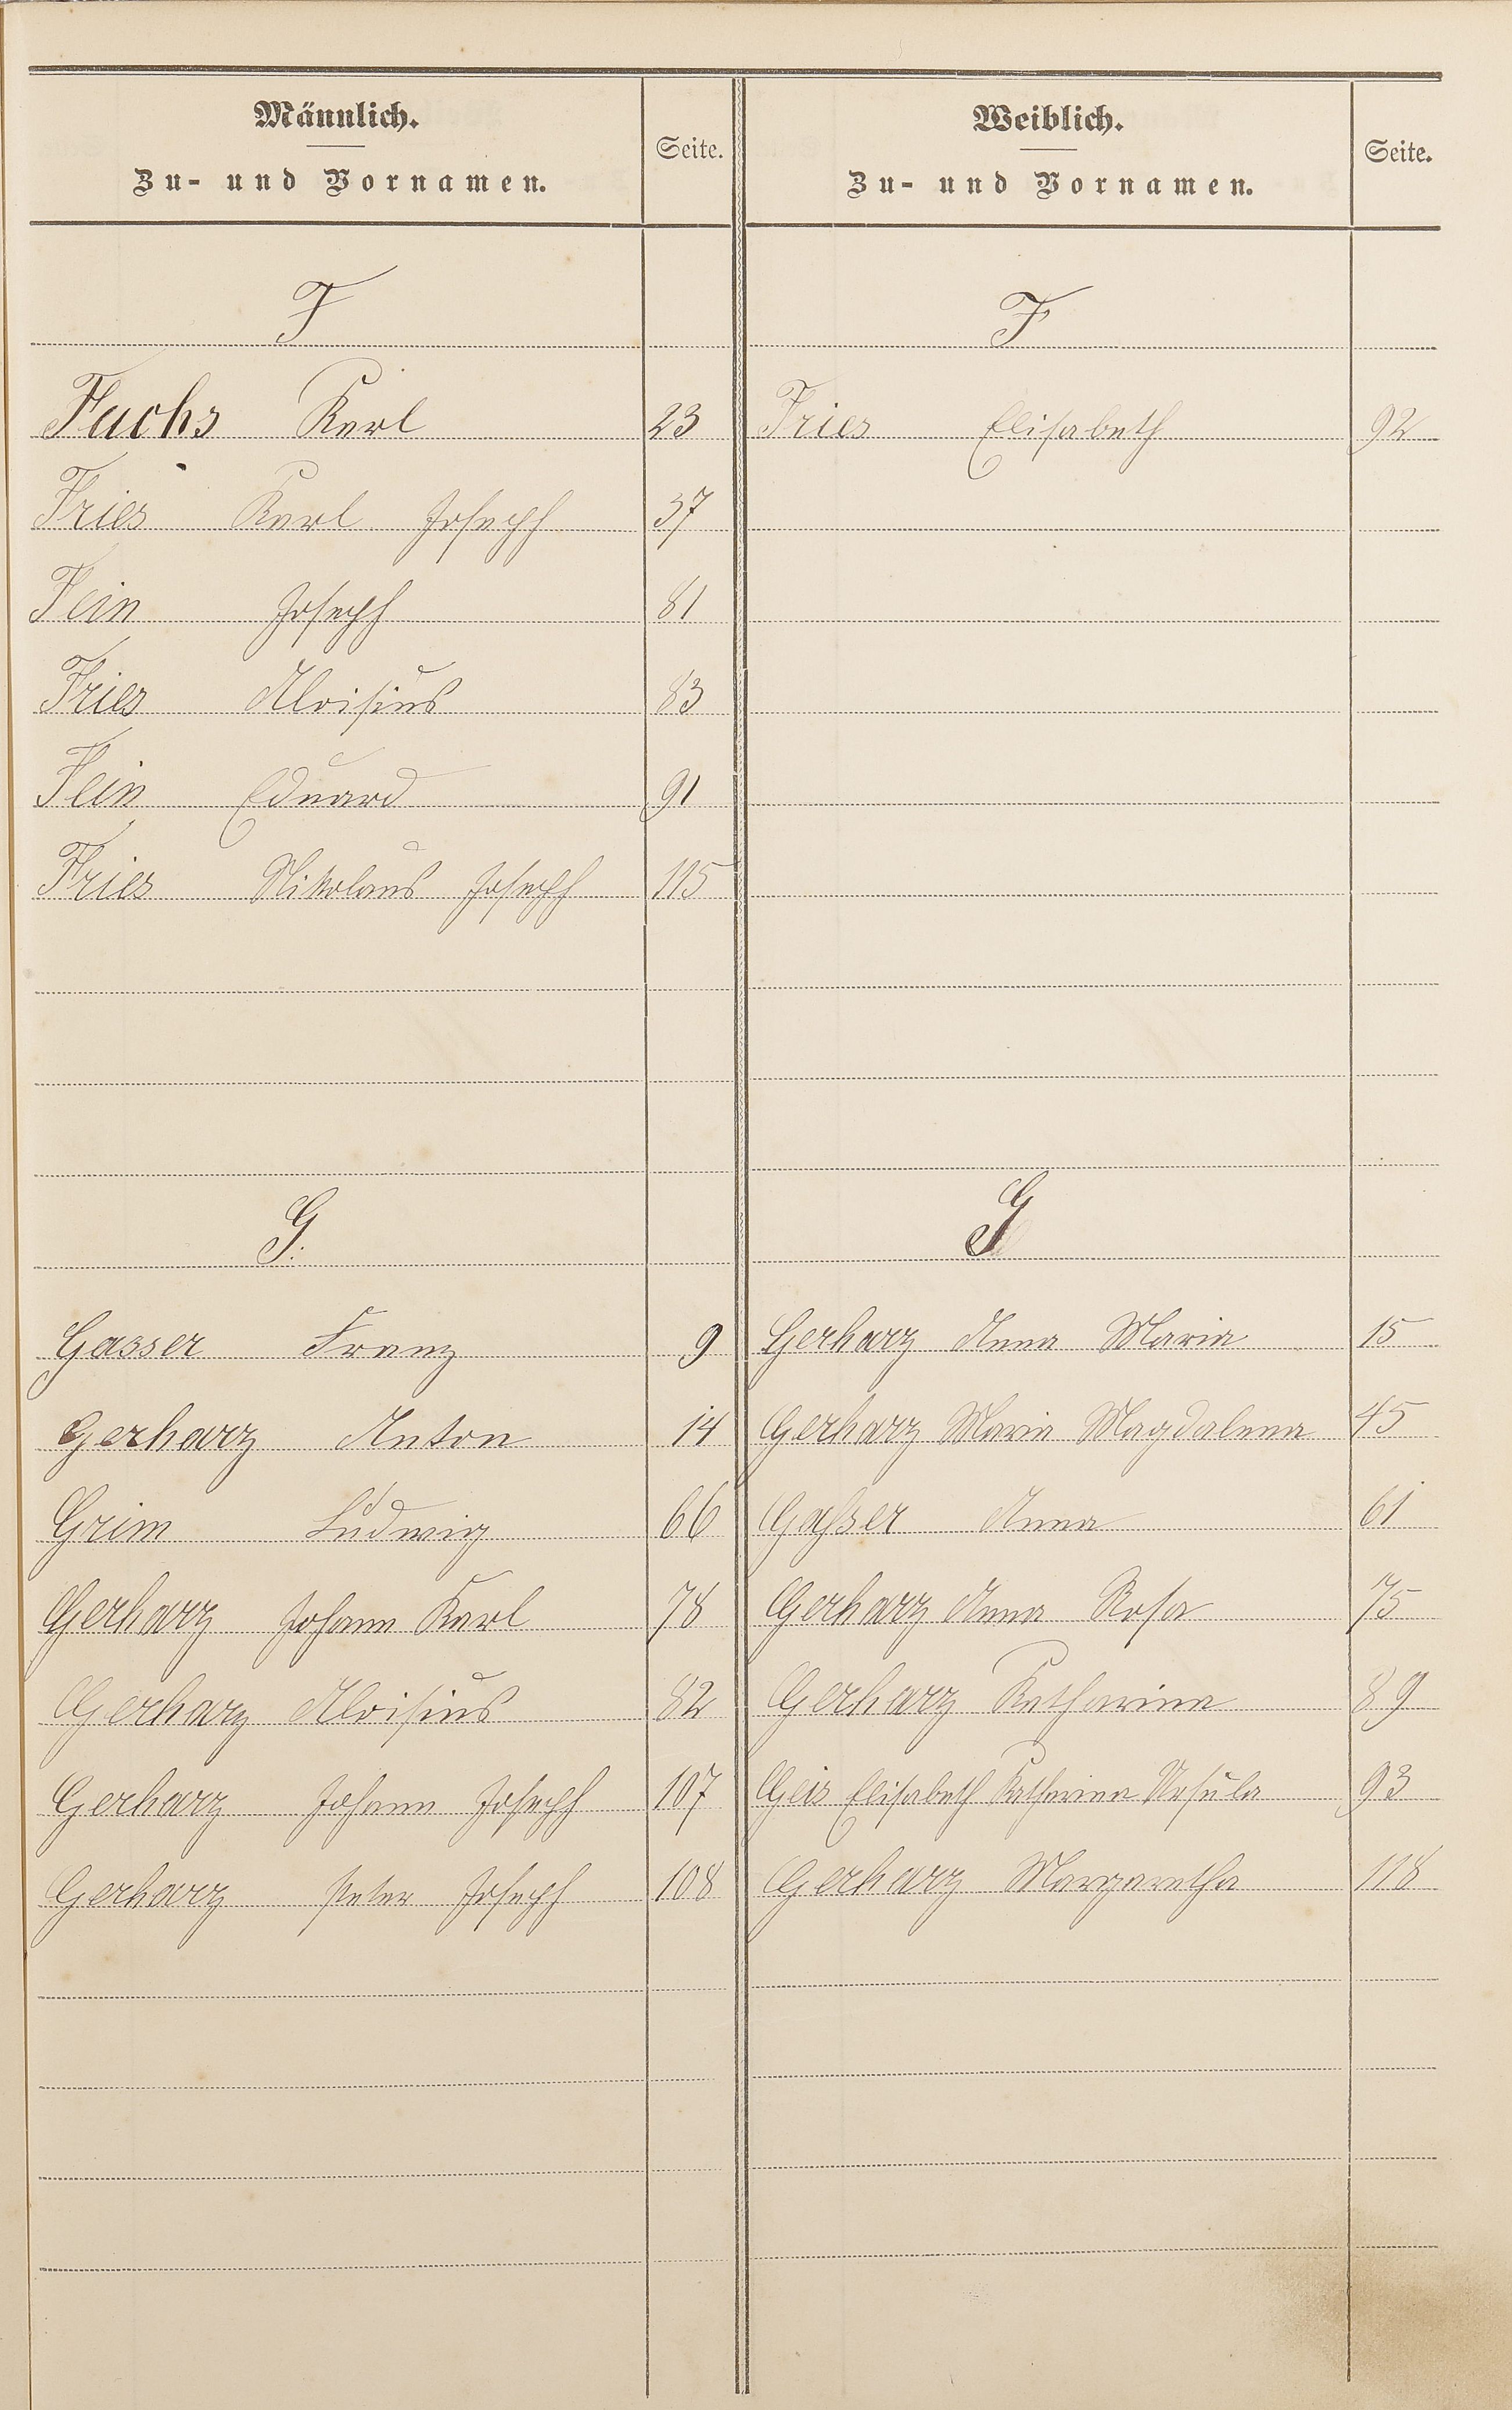 Männlich.
Zu- und Vornamen.
Seite.
F
Fuchs Karl 23
Fries Karl Joseph 37
Fein Joseph 81
Fries Aloisius 83
Fein Eduard 91
Fries Nikolaus Joseph 115
G.
Gasser Franz 9
Gerharz Anton 14
Grim Ludwig 66
Gerharz Johann Karl 78
Gerharz Aloisius 82
Gerharz Johann Joseph 107
Gerharz Peter Joseph 108
Weiblich.
Zu- und Vornamen.
Seite.
F
Fries Elisabeth 92
G
Gerharz Anna Maria 15
Gerharz Maria Magdalena 45
Gaßser Anna 61
Gerharz Anna Rosa 75
Gerharz Katharina 89
Geis Elisabeth Katharina Ursula 93
Gerharz Margaretha 118